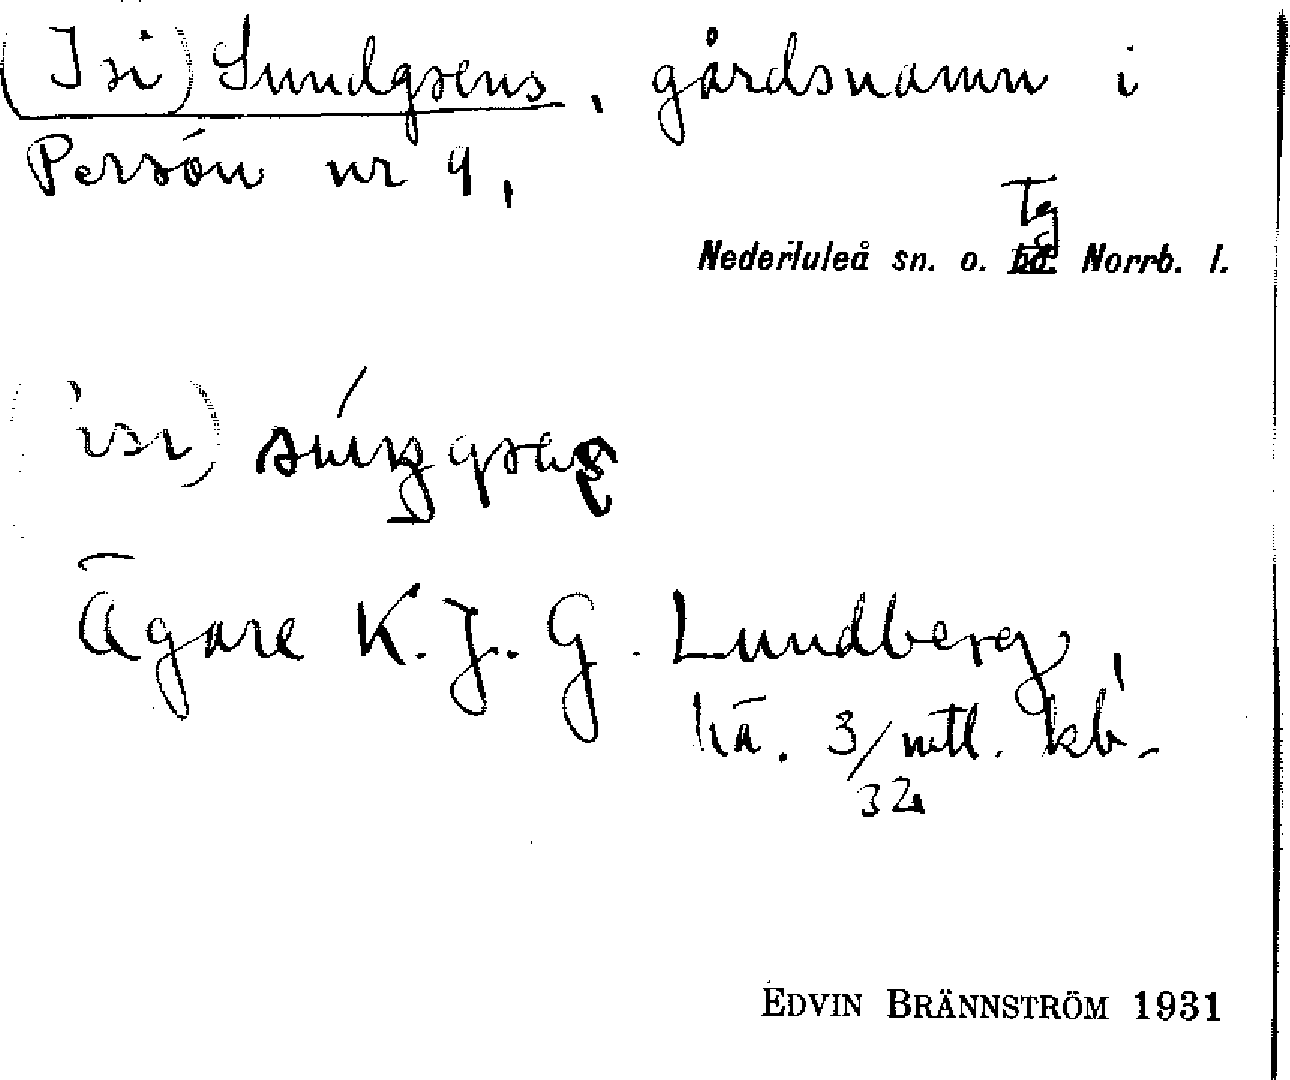 (Isi) Sundgrens, gårdsnamn i
Persön nr 9,
Tg
Nederluleå sn. o. bd. Norrb. l.
(isi)
Ägare K. J. G. Lundberg,
hä. 3/32 mtl. kb.
EDVIN BRÄNNSTRÖM 1931